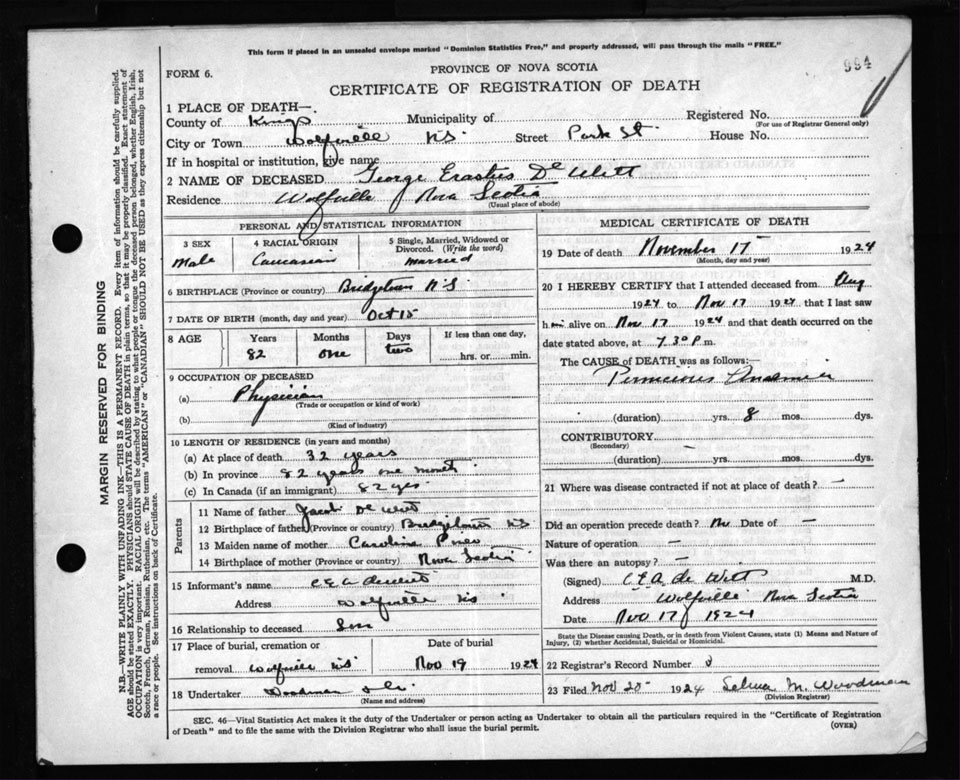 This form if placed in an unsealed envelope marked "Dominion Statistics Free," and properly addressed, will pass through the mails "FREE."
994
FORM 6.
PROVINCE OF NOVA SCOTIA
CERTIFICATE OF REGISTRATION OF DEATH
1 PLACE OF DEATH—
County of Kings Municipality of Registered No.
(For use of Registrar General only)
City or Town Wolfville NS. Street Park St. House No.
If in hospital or institution, give name
2 NAME OF DECEASED George Erastus De Witt
Residence Wolfville Nova Scotia
(Usual place of abode)
PERSONAL AND STATISTICAL INFORMATION
3 SEX
Male
4 RACIAL ORIGIN
Caucasian
5 Single, Married, Widowed or Divorced. (Write the word)
Married
6 BIRTHPLACE (Province or country) Bridgetown N.S.
7 DATE OF BIRTH (month, day and year) Oct 15
8 AGE Years Months Days If less than one day,
82 one two hrs. or min.
9 OCCUPATION OF DECEASED
(a) Physician
(Trade or occupation or kind of work)
(b)
(Kind of industry)
10 LENGTH OF RESIDENCE (in years and months)
(a) At place of death 32 years
(b) In province 82 years one month
(c) In Canada (if an immigrant) 82 yrs.
Parents
11 Name of father Jacob De Witt
12 Birthplace of father (Province or country) Bridgetown NS
13 Maiden name of mother Caroline
14 Birthplace of mother (Province or country) Nova Scotia
15 Informant's name C E A Dewitt
Address Wolfville NS.
16 Relationship to deceased Son
17 Place of burial, cremation or removal Wolfville NS
Date of burial
Nov 19 1924
18 Undertaker Woodman
(Name and address)
MEDICAL CERTIFICATE OF DEATH
19 Date of death November 17 1924
(Month, day and year)
20 I HEREBY CERTIFY that I attended deceased from Aug
1924 to Nov 17 1924, that I last saw
him alive on Nov 17 1924 and that death occurred on the
date stated above, at 7.30 P.m.
The CAUSE OF DEATH was as follows:—
Pernicious Anaemia
(duration) yrs. 8 mos. dys.
CONTRIBUTORY —
(Secondary)
(duration) yrs. mos. dys.
21 Where was disease contracted if not at place of death? —
Did an operation precede death? No Date of —
Nature of operation —
Was there an autopsy? —
(Signed) C E A de Witt M.D.
Address Wolfville Nova Scotia
Date Nov 17 1924
State the Disease causing Death, or in death from Violent Causes, state (1) Means and Nature of Injury, (2) whether Accidental, Suicidal or Homicidal.
22 Registrar's Record Number
23 Filed Nov 20 1924 Selma M. Woodman
(Division Registrar)
SEC. 46—Vital Statistics Act makes it the duty of the Undertaker or person acting as Undertaker to obtain all the particulars required in the "Certificate of Registration
of Death" and to file the same with the Division Registrar who shall issue the burial permit.
(OVER)
MARGIN RESERVED FOR BINDING
N.B.—WRITE PLAINLY WITH UNFADING INK—THIS IS A PERMANENT RECORD. Every item of information should be carefully supplied.
AGE should be stated EXACTLY. PHYSICIANS should STATE CAUSE OF DEATH in plain terms, so that it may be properly classified. Exact statement of
OCCUPATION is very important. RACIAL ORIGIN will be described by stating to what people or tongue the deceased person belonged, whether English, Irish,
Scotch, French, German, Russian, Ruthenian, etc. The terms "AMERICAN" or "CANADIAN" SHOULD NOT BE USED as they express citizenship but not
a race or people. See instructions on back of Certificate.